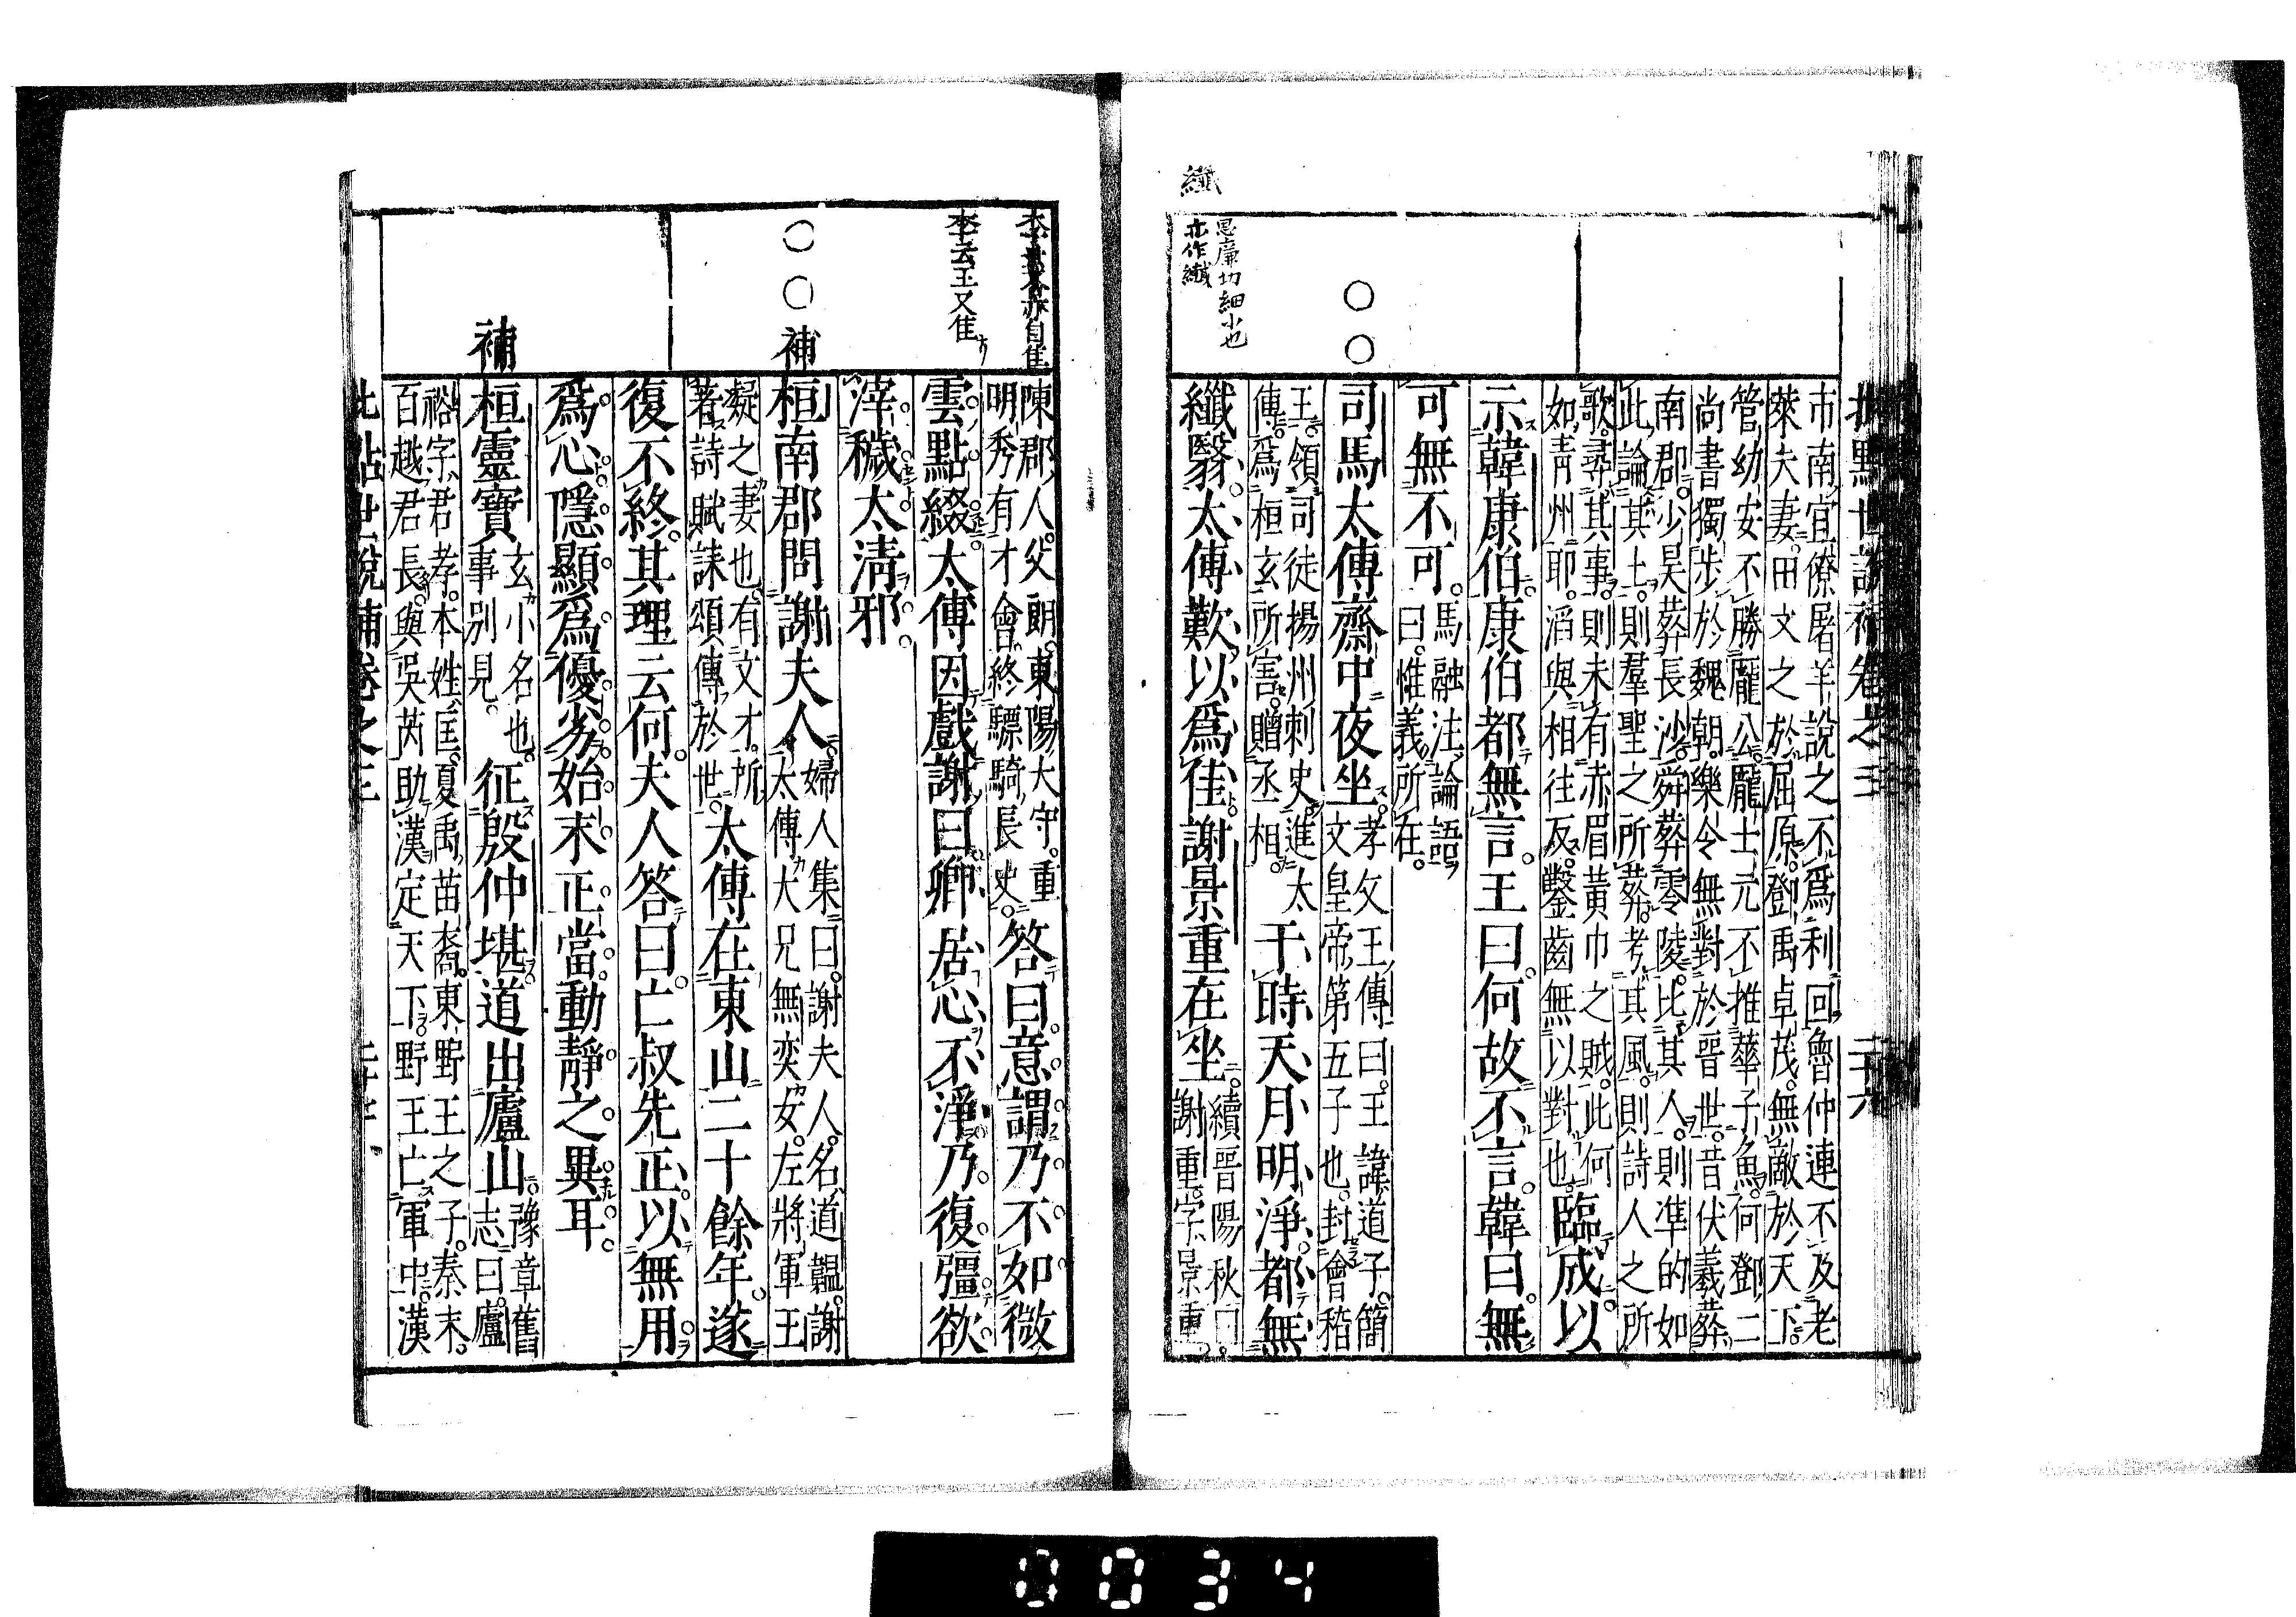 批點世說補卷之三 二十六
市南宜僚屠羊說之不爲利回魯仲連不及老
萊夫妻田文之於屈原鄧禹卓茂無敵於天下
管幼安不勝龐公龐士元不推華子魚何鄧二
尚書獨步於魏朝樂令無對於晉世昔伏羲葬
南郡少昊葬長沙舜葬零陵比其人則準的如
此論其土則羣聖之所葬考其風則詩人之所
歌尋其事則未有赤眉黃巾之賊此何
如青州耶滔與相往反鑿齒無以對也
臨成以
示韓康伯康伯都無言王曰何故不言韓曰無
可無不可
馬融注論語
曰惟義所在
○○
司馬太傅齋中夜坐
孝文王傳曰王諱道子簡
文皇帝第五子也封會稽
王領司徒揚州刺史進太
傅爲桓玄所害贈丞相
于時天月明淨都無
纖
思廉切細小也
亦作纎
纖翳太傅歎以爲佳謝景重在坐
續晉陽秋曰
謝重字景重
陳郡人父朗東陽太守重
明秀有才會終驃騎長史
答曰意謂乃不如微
李云王又佳
雲點綴太傅因戲謝曰卿居心不淨乃復彊欲
滓穢太清邪
○○補
桓南郡問謝夫人
婦人集曰謝夫人名道韞謝
太傅大兄無奕女左將軍王
凝之妻也有文才所
著詩賦誄頌傳於世
太傅在東山二十餘年遂
復不終其理云何夫人答曰亡叔先正以無用
爲心隱顯爲優劣始末正當動靜之異耳
補
桓靈寶
玄小名也
事别見
征殷仲堪道出廬山
豫章舊
志曰廬
裕字君孝本姓匡夏禹苗裔東野王之子秦末
百越君長與吳芮助漢定天下野王亡軍中漢
批點世說補卷之三